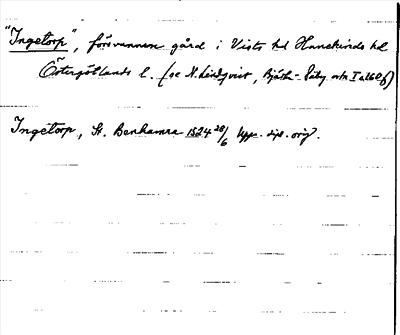 "Ingetorp", försvunnen gård i Vists sd Hanekinds hd
Östergötlands l. (se N. Lindqvist, Bjärka-Säby ortn I a 260 f)
Ingetorp, St. Benhamra 1524 28/6 Upps. dipl. orig.